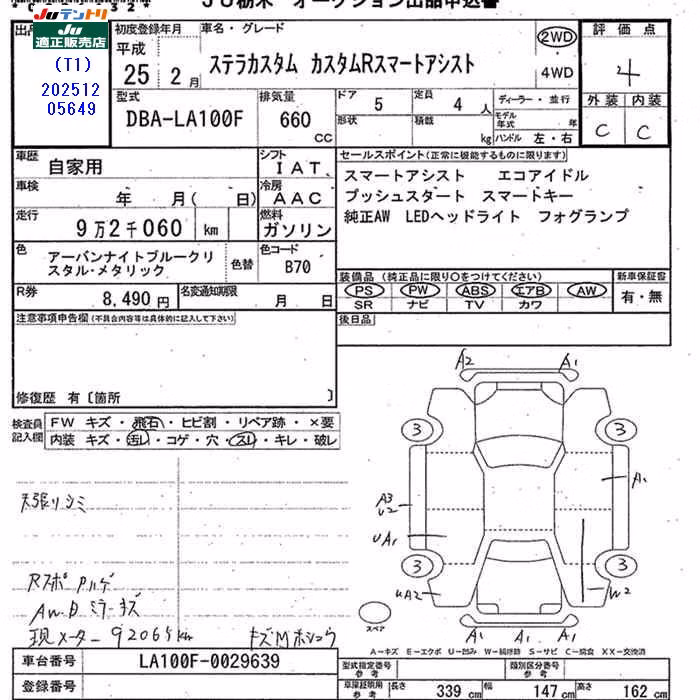 JU栃木 オークション出品申込書
JUテントリ
JU 適正販売店
(T1)
202512
05649
初度登録年月 車名・グレード 評価点
平成 25年 2月 ステラカスタム カスタムRスマートアシスト 2WD・4WD 4
型式 排気量 ドア 定員 ディーラー・並行 外装 内装
DBA-LA100F 660 CC 5 4人 C C
形状 積載 kg モデル年式 年 ハンドル 左・右
車歴 自家用 シフト IAT セールスポイント(正常に機能するものに限ります)
車検 年 月( 日) 冷房 AAC スマートアシスト エコアイドル
プッシュスタート スマートキー
走行 9万2千060 km 燃料 ガソリン 純正AW LEDヘッドライト フォグランプ
色 アーバンナイトブルークリスタル・メタリック 色替 色コード B70
装備品(純正品に限り○をつけてください) 新車保証書
PS PW ABS エアB AW 有・無
SR ナビ TV カワ
R券 8,490円 名変通知期限 月 日
注意事項申告欄(不具合内容等は具体的に記入して下さい) 後日品
修復歴 有〔箇所 〕
検査員記入欄 FW キズ・飛石・ヒビ割・リペア跡・×要
内装 キズ・汚レ・コゲ・穴・スレ・キレ・破レ
A2 A1
3 3
A1
A3
U2
UA1
3 3
UA2 W2
A1 A1 A1
スペア
天張リシミ
Rスポ Aハゲ
AW・D ミラーキズ
現メーター 92065km キズMホショウ
A-キズ E-エクボ U-凹み W-補修跡 S-サビ C-腐食 XX-交換済
車台番号 LA100F-0029639 型式指定番号 類別区分番号
登録番号 車庫証明用参考 長さ 339cm 幅 147cm 高さ 162cm